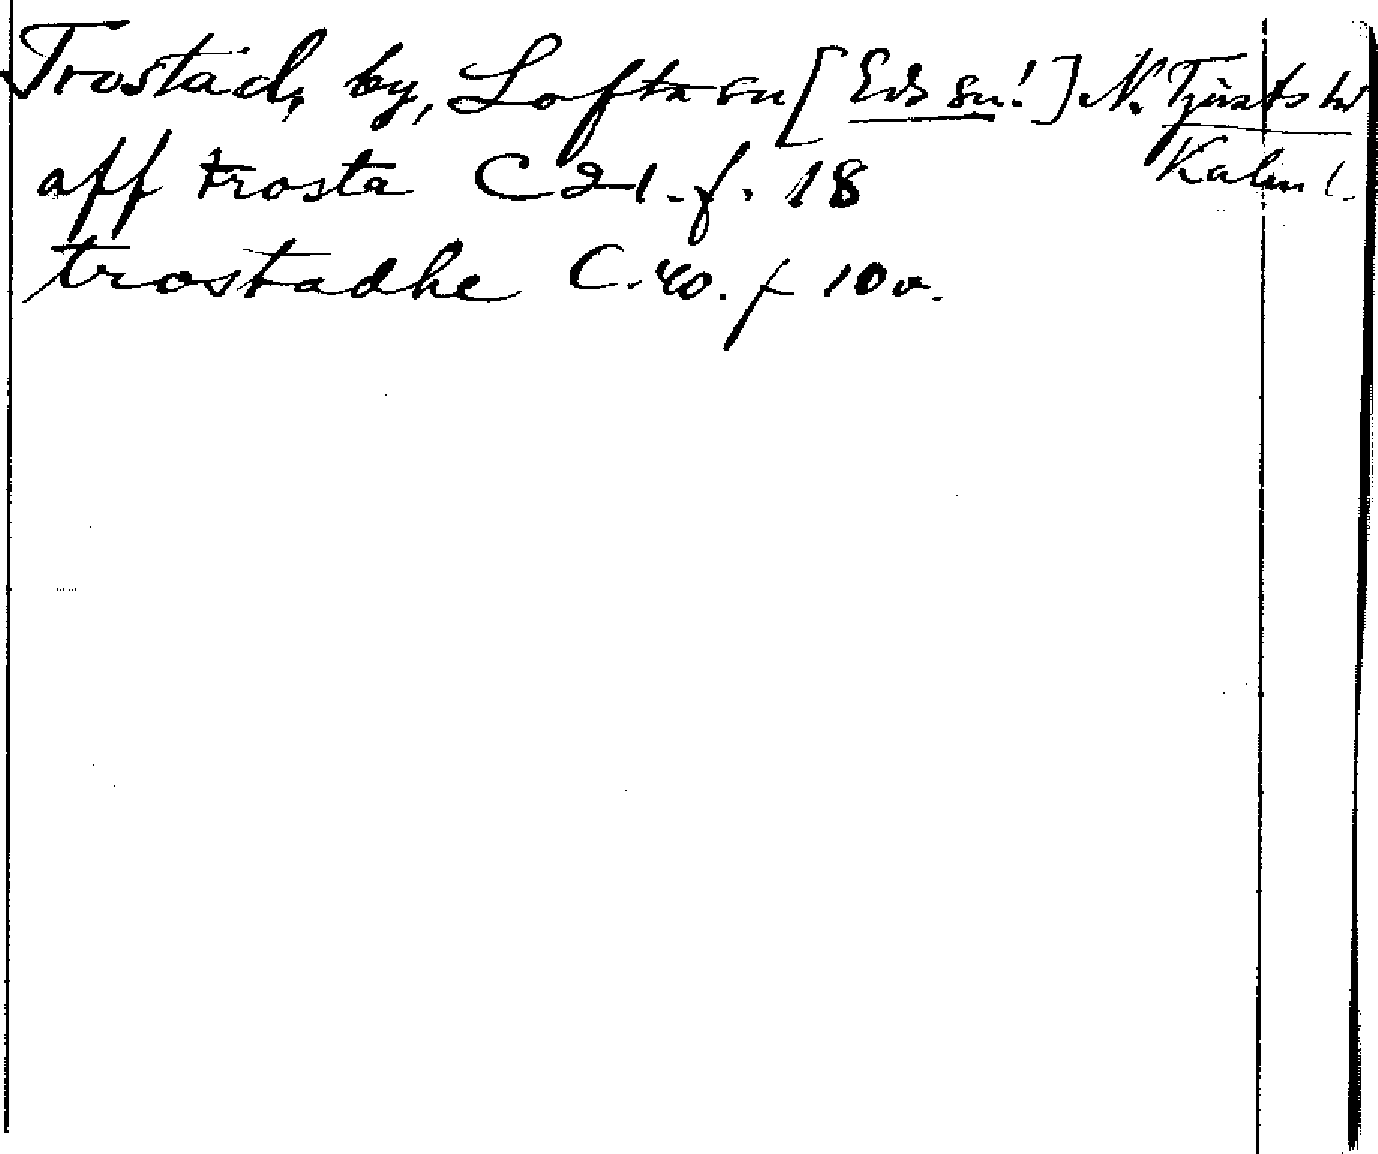 Trostad, by, Lofta sn [Eds sn!] N. Tjusts hd
Kalm l.
aff trosta C 21. f. 18
trostadhe C. 40. f 10 v.